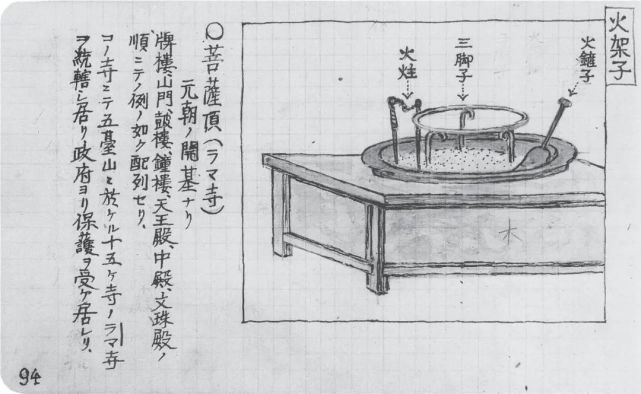 火架子
火鏟子
三脚子
火炷
木
〇菩薩頂(ラマ寺)
元朝ノ開基ナリ
牌樓、山門、鼓樓、鐘樓、天王殿、中殿、文珠殿ノ
順ニテ例ノ如ク配列セリ、
コノ寺ニテ五臺山ニ於ケル十五ヶ寺ノラマ寺
ヲ統轄シ居リ政府ヨリ保護ヲ受ケ居レリ、
94